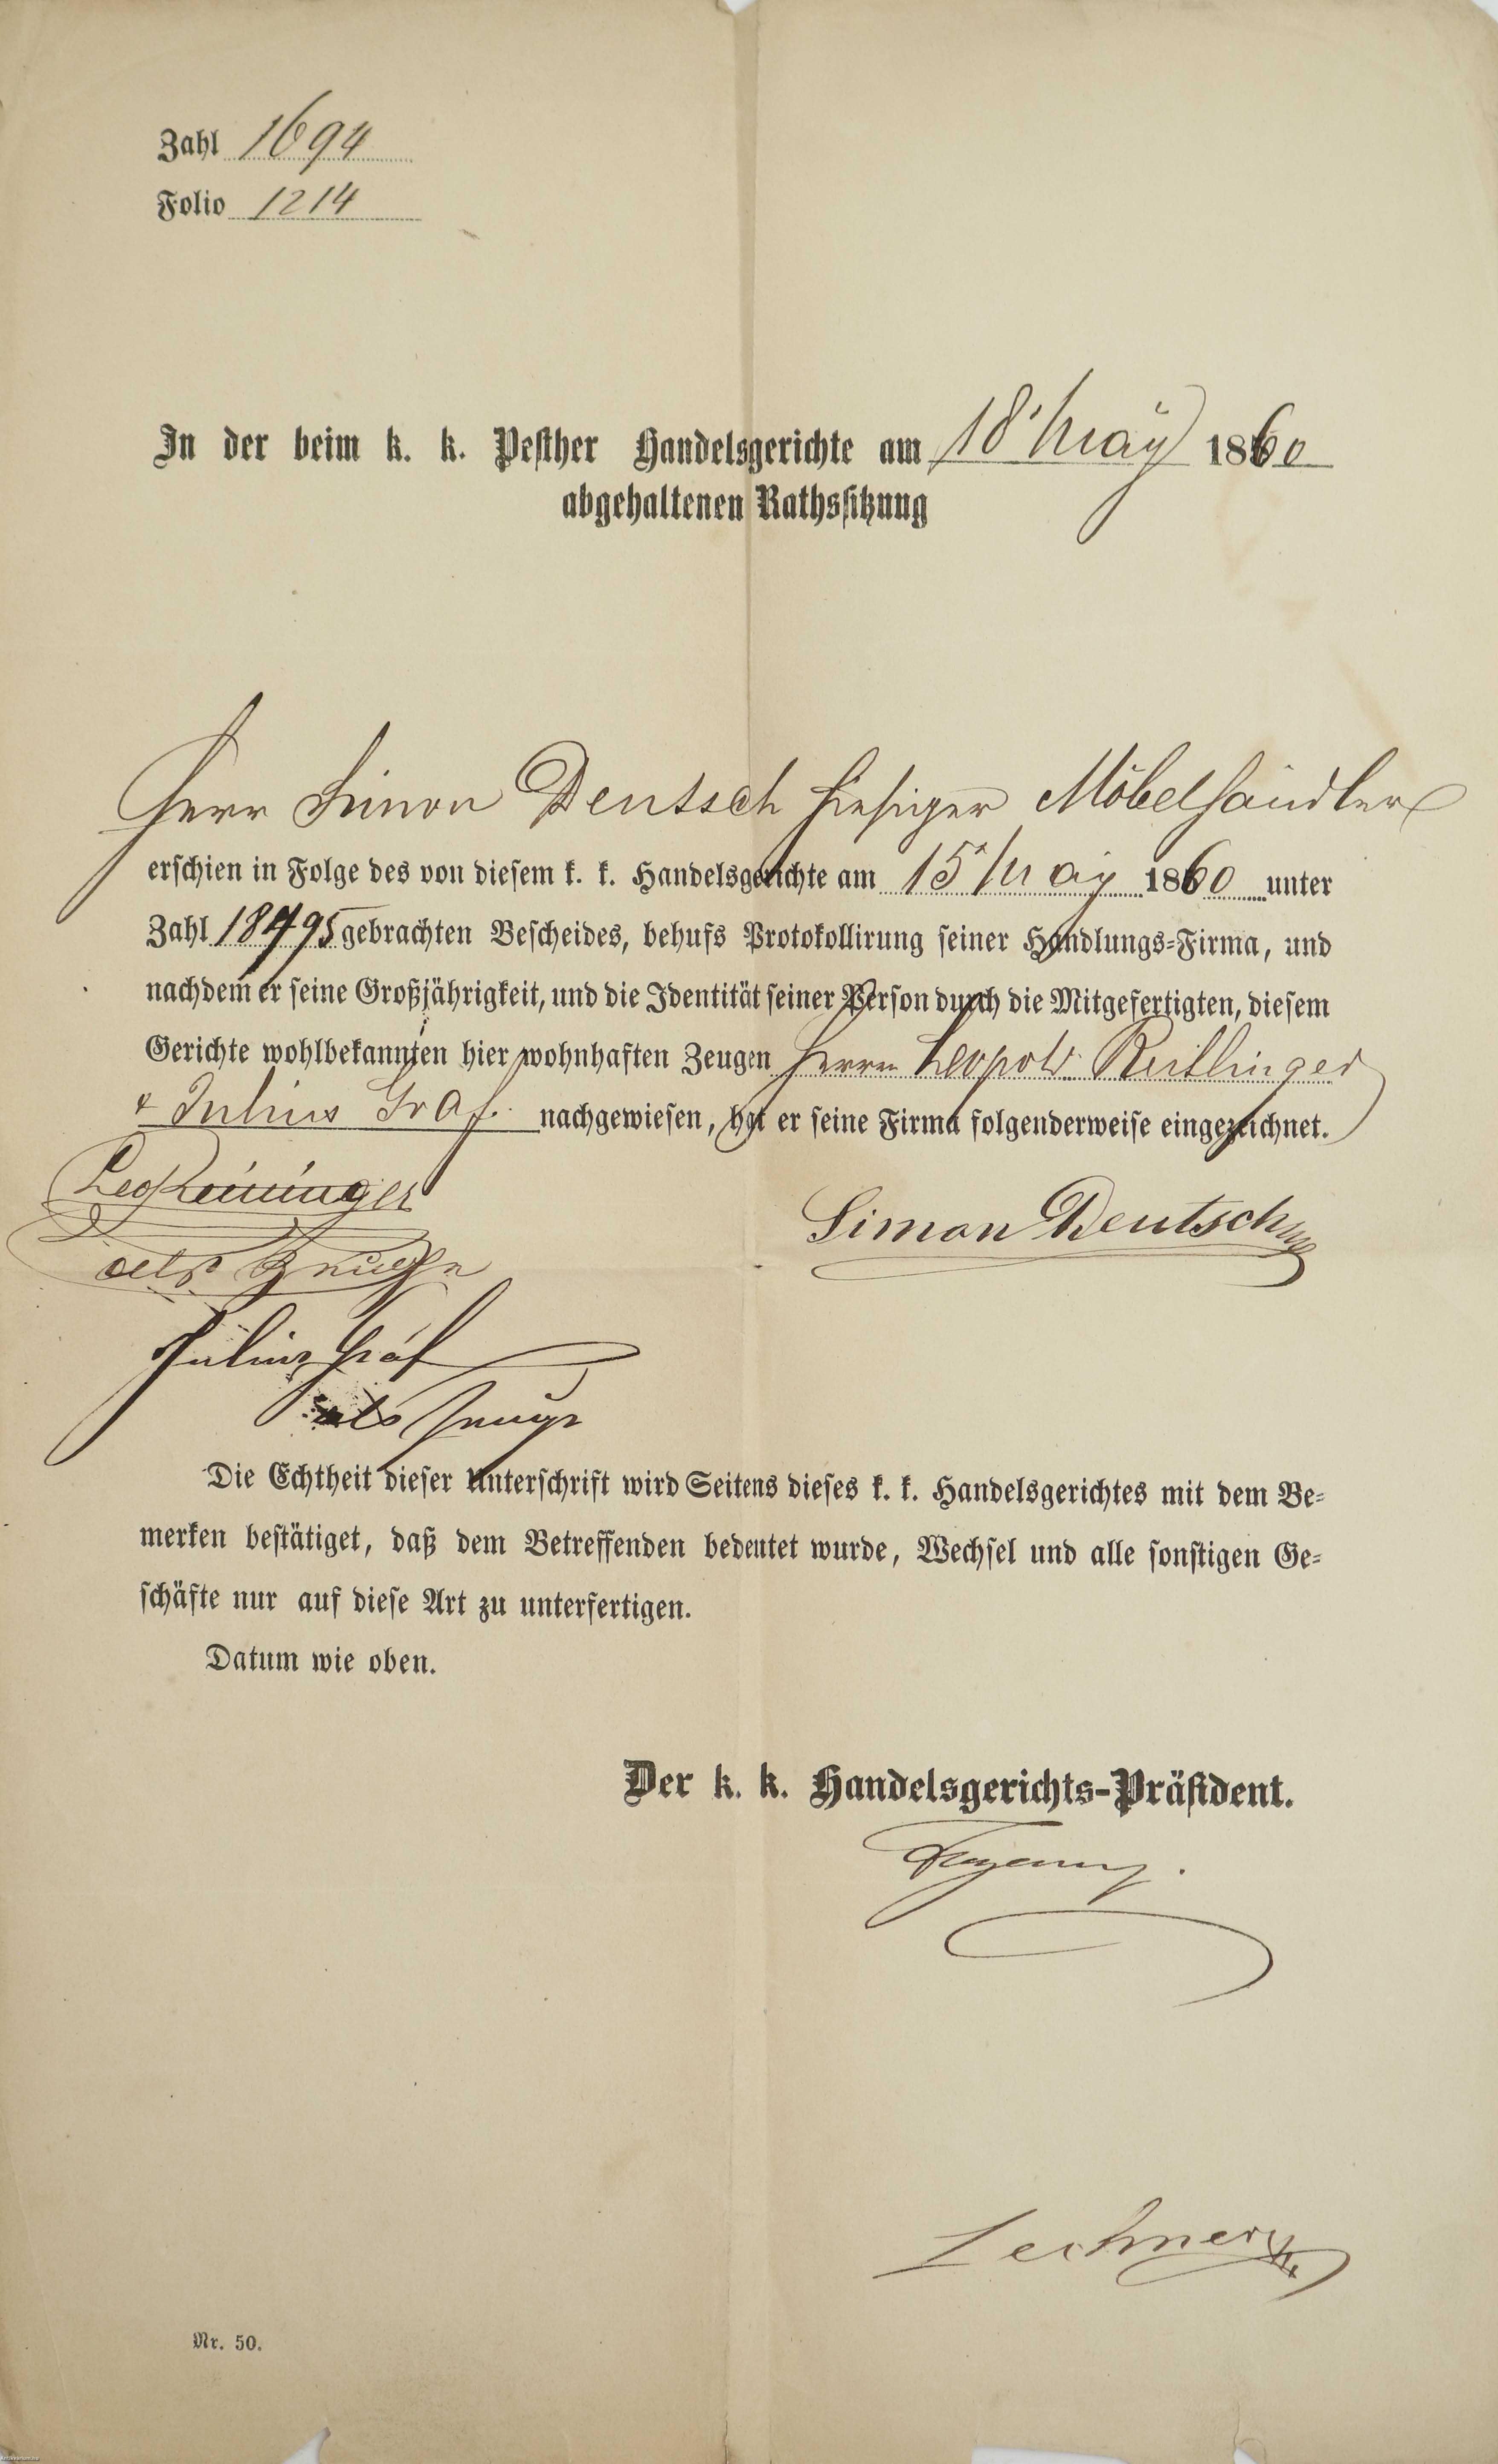 Zahl 1694
Folio 1214
In der beim k. k. Pesther Handelsgerichte am 18 May 1860
abgehaltenen Rathssitzung
Herr Simon Deutsch hiesiger Möbelhändler
erschien in Folge des von diesem k. k. Handelsgerichte am 15 May 1860 unter
Zahl 18495 gebrachten Bescheides, behufs Protokollirung seiner Handlungs-Firma, und
nachdem er seine Großjährigkeit, und die Identität seiner Person durch die Mitgefertigten, diesem
Gerichte wohlbekannten hier wohnhaften Zeugen Herrn Leopold
& Julius Graf nachgewiesen, hat er seine Firma folgenderweise eingezeichnet.
Simon Deutsch
als Zeuge
Julius Gráf
als Zeuge
Die Echtheit dieser Unterschrift wird Seitens dieses k. k. Handelsgerichtes mit dem Be-
merken bestätiget, daß dem Betreffenden bedeutet wurde, Wechsel und alle sonstigen Ge-
schäfte nur auf diese Art zu unterfertigen.
Datum wie oben.
Der k. k. Handelsgerichts-Präsident.
Lechner
Nr. 50.